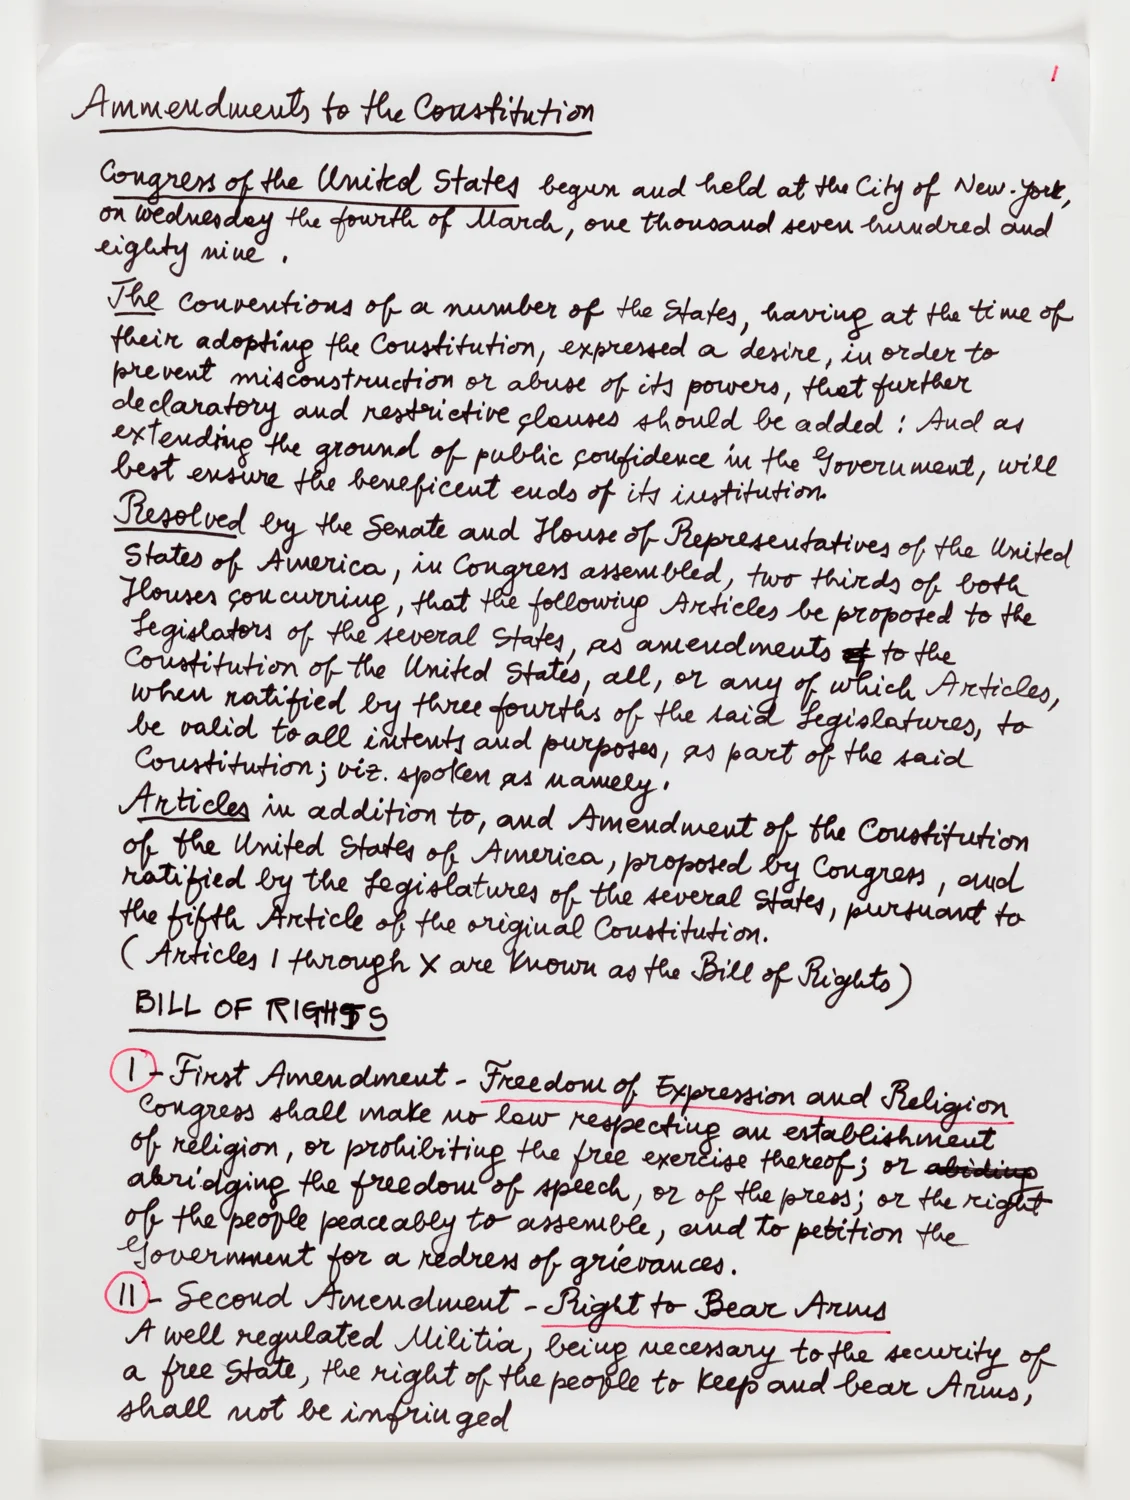 1
Ammendments to the Constitution
Congress of the United States begun and held at the City of New-York,
on wednesday the fourth of March, one thousand seven hundred and
eighty nine .
The conventions of a number of the States, having at the time of
their adopting the Constitution, expressed a desire, in order to
prevent misconstruction or abuse of its powers, that further
declaratory and restrictive clauses should be added : And as
extending the ground of public confidence in the Government, will
best ensure the beneficent ends of its institution.
Resolved by the Senate and House of Representatives of the United
States of America, in Congress assembled, two thirds of both
Houses concurring, that the following Articles be proposed to the
Legislators of the several States, as amendments to the
Constitution of the United States, all, or any of which Articles,
when ratified by three fourths of the said Legislatures, to
be valid to all intents and purposes, as part of the said
Constitution; viz. spoken as namely.
Articles in addition to, and Amendment of the Constitution
of the United States of America, proposed by Congress, and
ratified by the Legislatures of the several States, pursuant to
the fifth Article of the original Constitution.
(Articles I through X are known as the Bill of Rights)
BILL OF RIGHTS
I - First Amendment - Freedom of Expression and Religion
Congress shall make no law respecting an establishment
of religion, or prohibiting the free exercise thereof; or abiding
abridging the freedom of speech, or of the press; or the right
of the people peaceably to assemble, and to petition the
Government for a redress of grievances.
II - Second Amendment - Right to Bear Arms
A well regulated Militia, being necessary to the security of
a free State, the right of the people to keep and bear Arms,
shall not be infringed